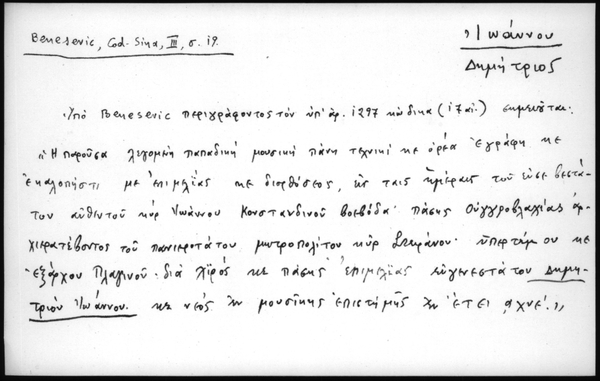 Benesevic, Cod. Sina, III, σ. 19.
Ἰωάννου
Δημήτριος
Ὑπὸ Benesevic περιγράφοντος τὸν ὑπ' ἀρ. 1297 κώδικα (17 αἰ.) σημειοῦται:
"Ἡ παροῦσα λεγομένη παπαδικὴ μουσικὴ πάνη τεχνικὶ κὲ ὁρέα ἐγράφη κὲ
ἐκαλοπήστι μὲ ἐπιμελίας κὲ διορθόσεος, ἐς ταις ἡμέραις τοῦ εὐσεβεστά-
του αὐθεντοῦ κὺρ Ἰωάννου Κονστανδίνου βοεβόδα· πάσης Οὐγγροβλαχίας ἀρ-
χιερατέβοντος τοῦ πανιεροτάτου μιτροπολίτου κὺρ Στεφάνου· ὑπερτίμου κὲ
ἐξάρχου Πλαγινοῦ· διὰ χῒρός κὲ πάσης ἐπιμελίας εὐγενεστάτου Δημη-
τρίου Ἰωάννου. κὲ νεός ἐν μουσίκης ἐπιστήμης ἐν ἔτει ͵αχνε΄."